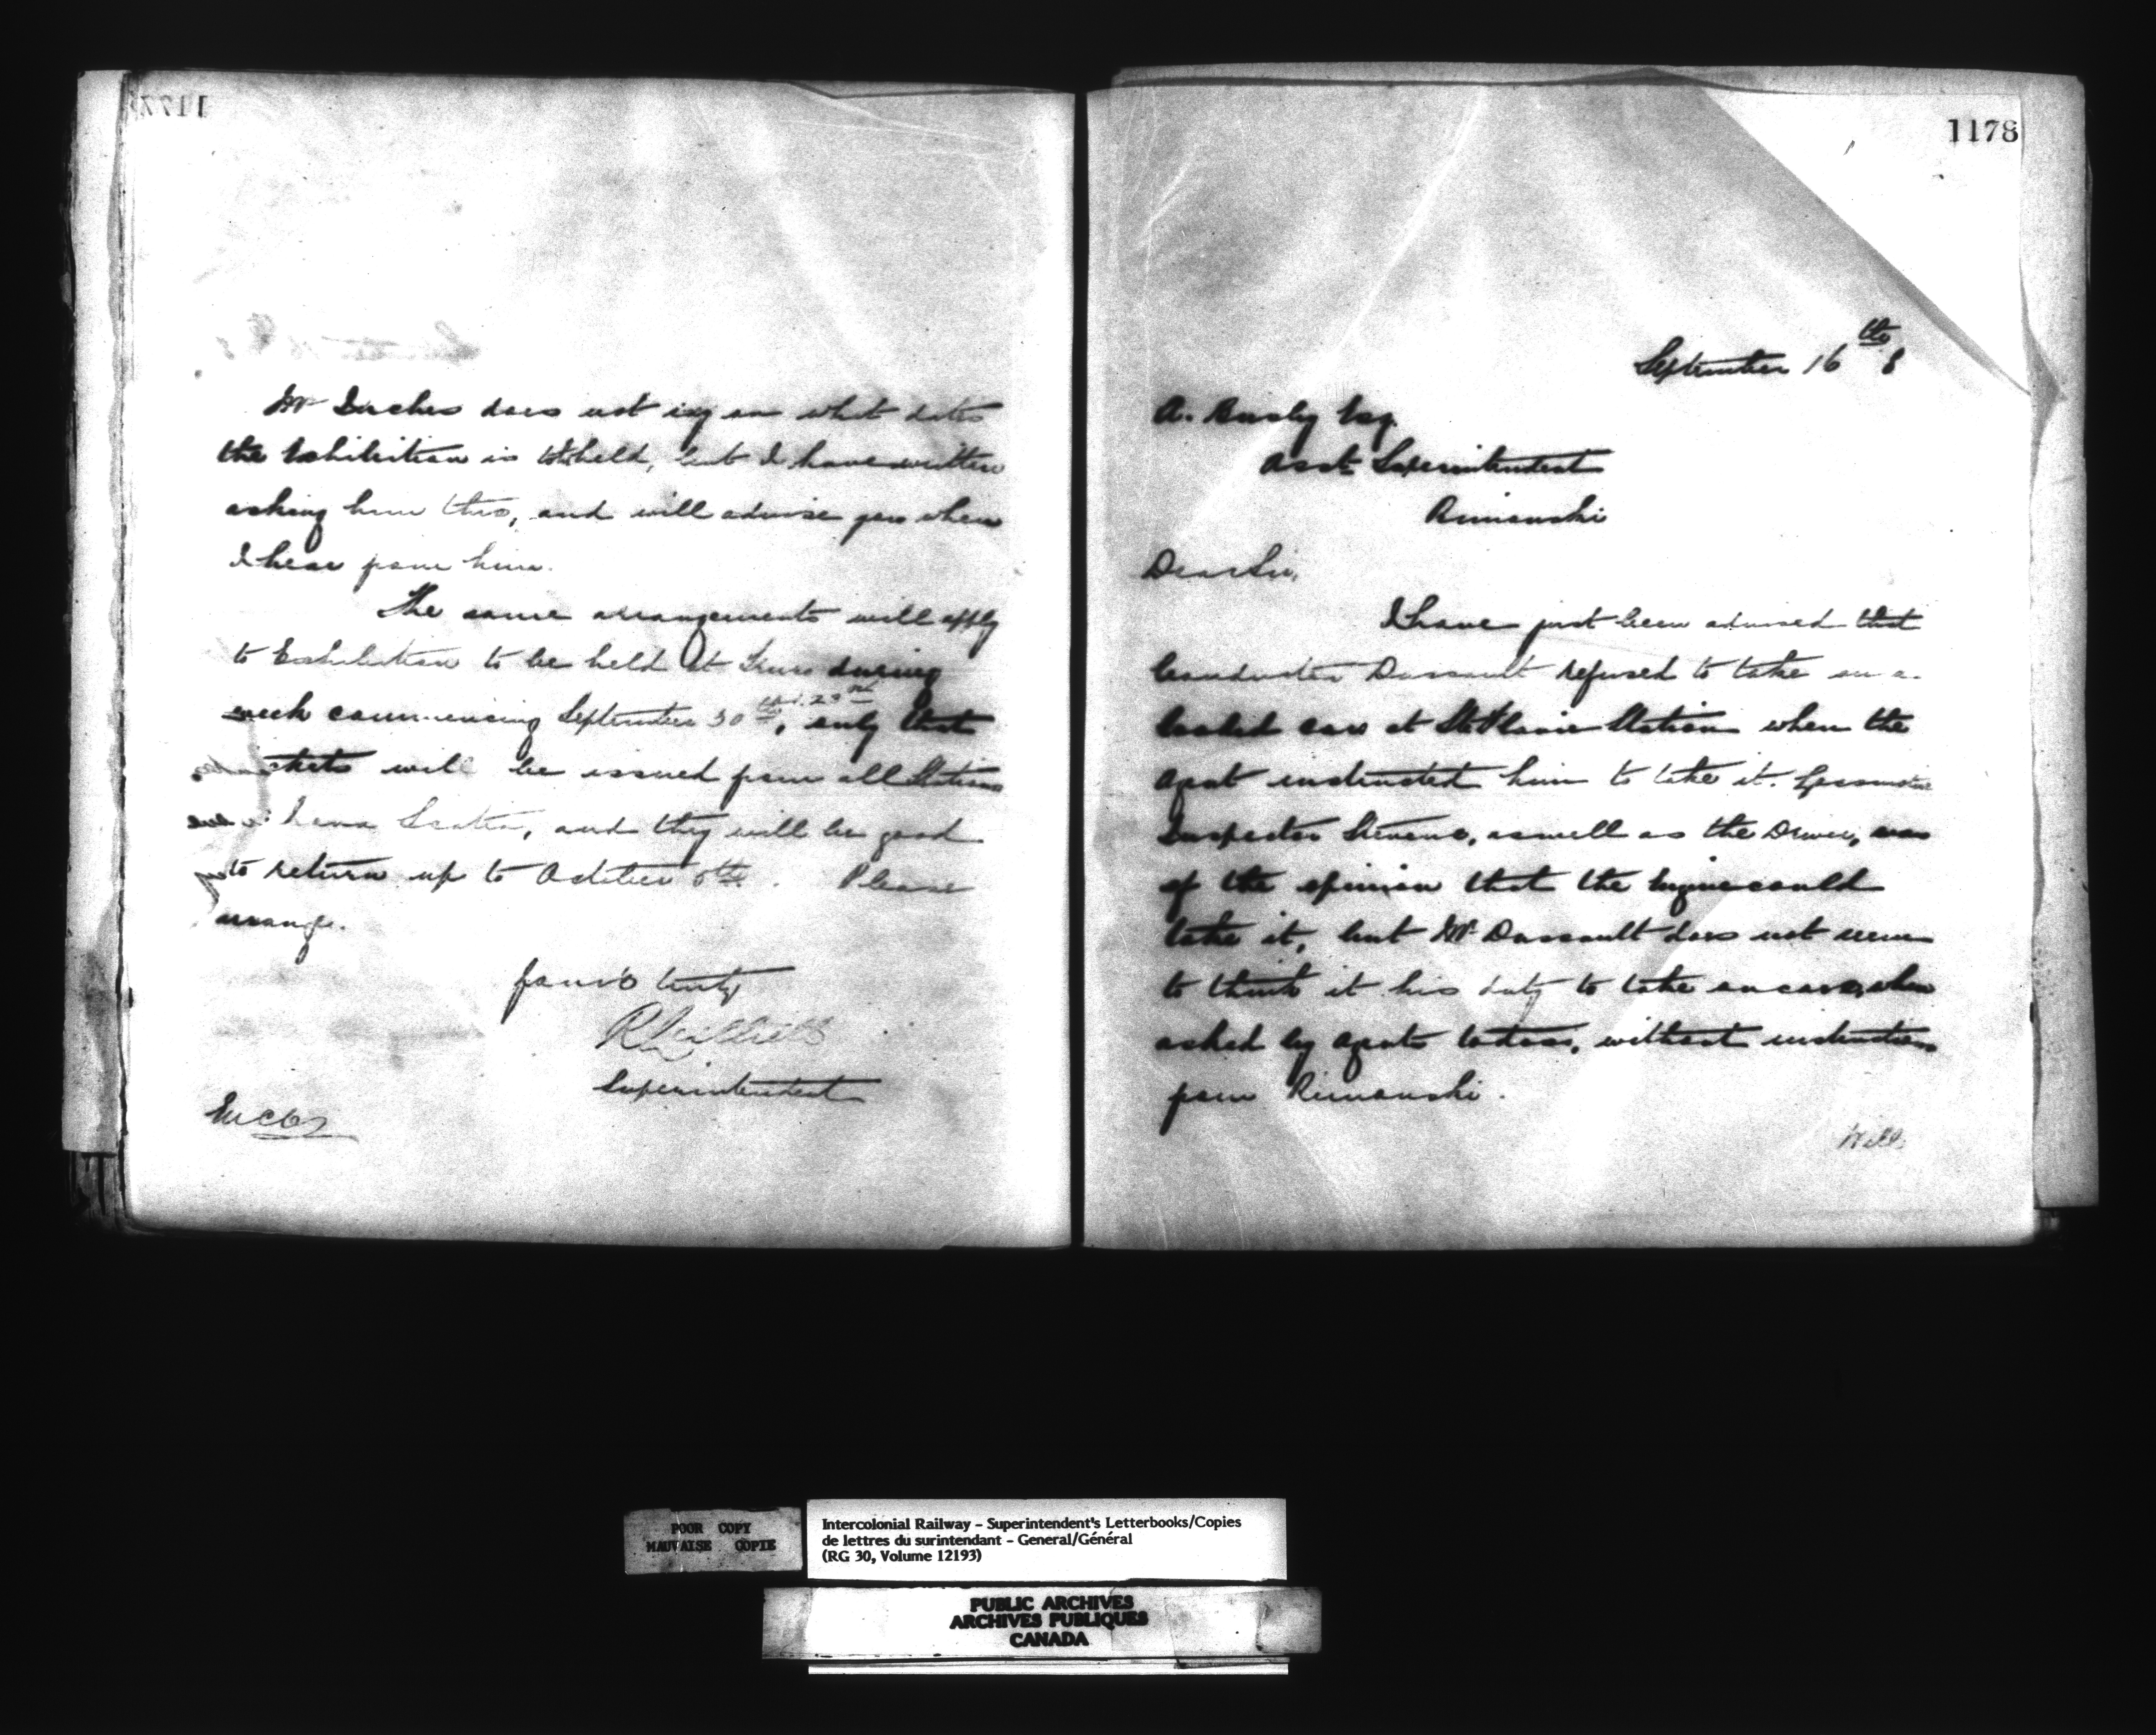 Mr Inches does not say on what dates
the Exhibition is to be held, but I have written
asking him this, and will advise you when
I hear from him.
The same arrangements will apply
to Exhibition to be held at Truro during
week commencing September 30th, only that
tickets will be issued from all Stations
in Nova Scotia, and they will be good
to return up to October 6th. Please
arrange.
Yours truly
Superintendent
1178
September 16th 8
A. Busby Esq.
Asst. Superintendent
Rimouski
Dear Sir,
I have just been advised that
Conductor Dussault refused to take on a
loaded car at St Flavie Station when the
Agent instructed him to take it. Locomotive
Inspector Stevens, as well as the Driver, was
of the opinion that the Engine could
take it, but Mr Dussault does not seem
to think it his duty to take on cars, when
asked by Agents to do so, without instructions
from Rimouski.
Will
POOR COPY
MAUVAISE COPIE
Intercolonial Railway – Superintendent's Letterbooks/Copies
de lettres du surintendant – General/Général
(RG 30, Volume 12193)
PUBLIC ARCHIVES
ARCHIVES PUBLIQUES
CANADA